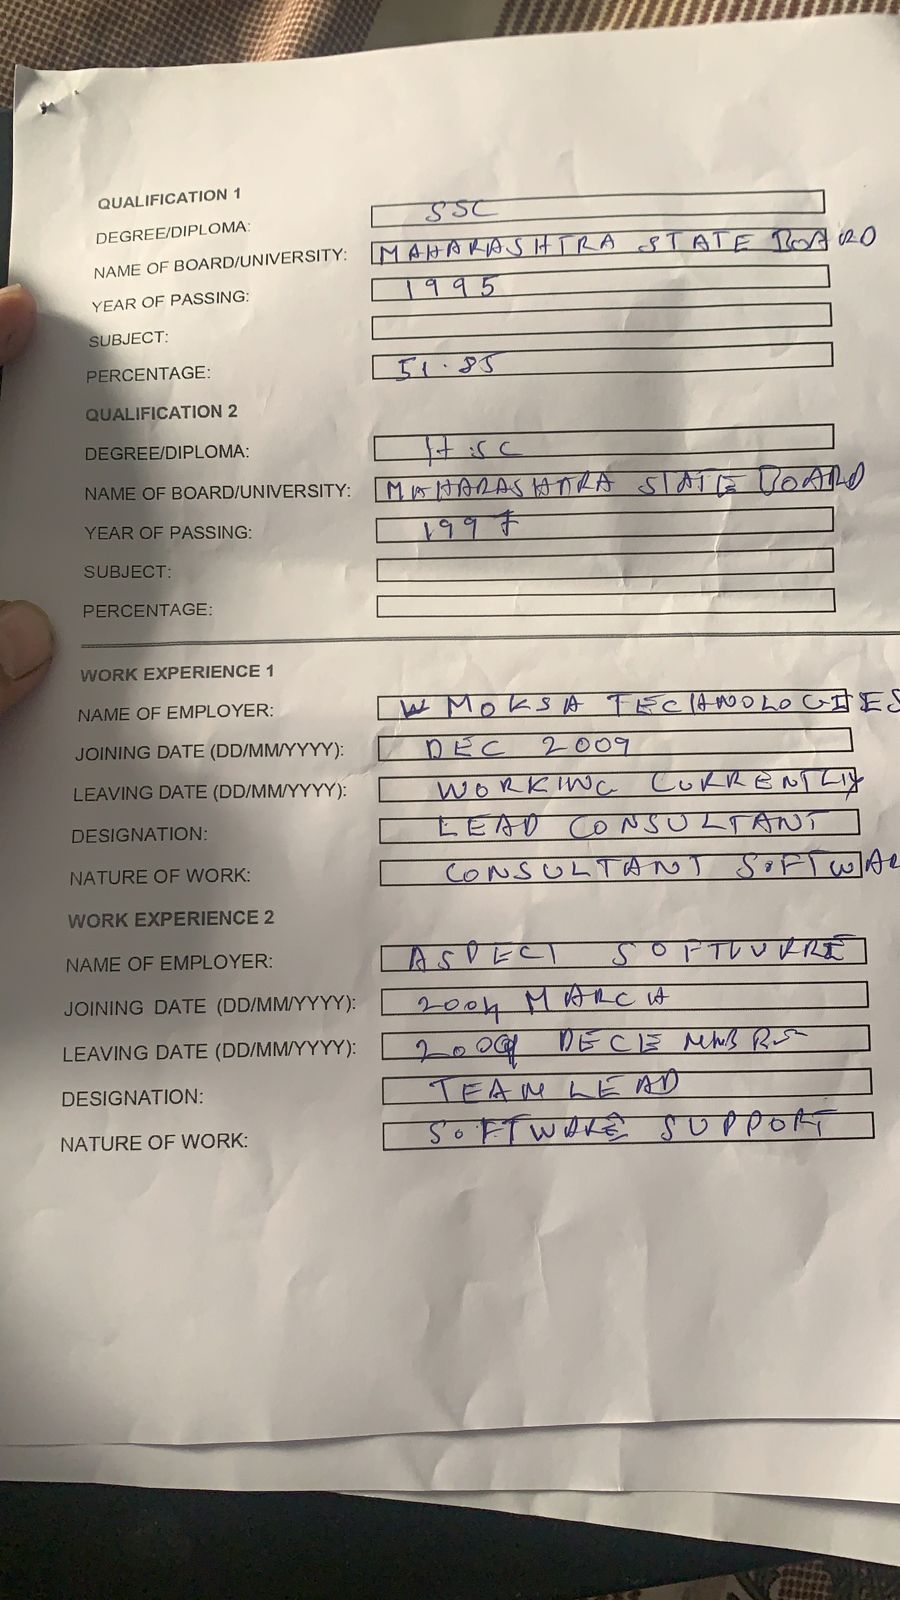 QUALIFICATION 1
DEGREE/DIPLOMA: SSC
NAME OF BOARD/UNIVERSITY: MAHARASHTRA STATE BOARD
YEAR OF PASSING: 1995
SUBJECT:
PERCENTAGE: 51.85
QUALIFICATION 2
DEGREE/DIPLOMA: H.SC
NAME OF BOARD/UNIVERSITY: MAHARASHTRA STATE BOARD
YEAR OF PASSING: 1997
SUBJECT:
PERCENTAGE:
WORK EXPERIENCE 1
NAME OF EMPLOYER: MOKSA TECHNOLOGIES
JOINING DATE (DD/MM/YYYY): DEC 2009
LEAVING DATE (DD/MM/YYYY): WORKING CURRENTLY
DESIGNATION: LEAD CONSULTANT
NATURE OF WORK: CONSULTANT SOFTWAR
WORK EXPERIENCE 2
NAME OF EMPLOYER: ASPECT SOFTWARE
JOINING DATE (DD/MM/YYYY): 2004 MARCH
LEAVING DATE (DD/MM/YYYY): 2009
DESIGNATION: TEAM LEAD
NATURE OF WORK: SOFTWARE SUPPORT